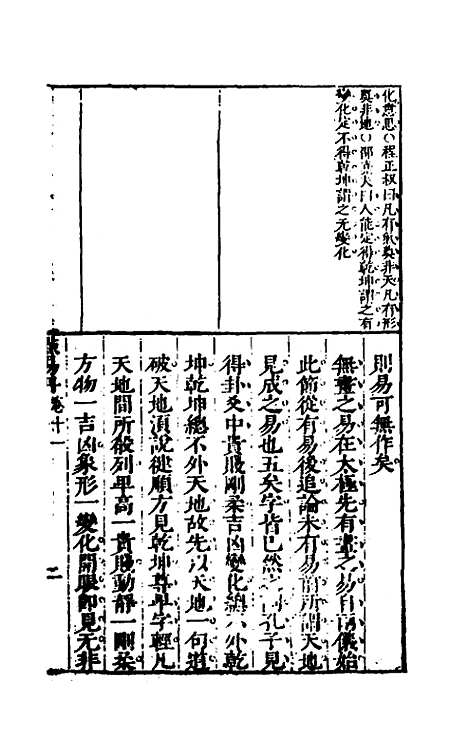 化意思〇程正叔曰凡有氣莫非天凡有形
莫非地〇邵堯夫曰人能定得乾坤謂之有
變化定不得乾坤謂之无變化
則易可無作矣
無畫之易在太極先有畫之易自兩儀始
此節從有易後追論未有易前所謂天地
見成之易也五矣字皆已然之詞孔子見
得卦爻中貴賤剛柔吉凶變化總不外乾
坤乾坤總不外天地故先以天地一句道
破天地須說健順方見乾坤尊卑字輕凡
天地間所設列卑高一貴賤動靜一剛柔
方物一吉凶象形一變化開眼卽見无非
易 卷十一
二